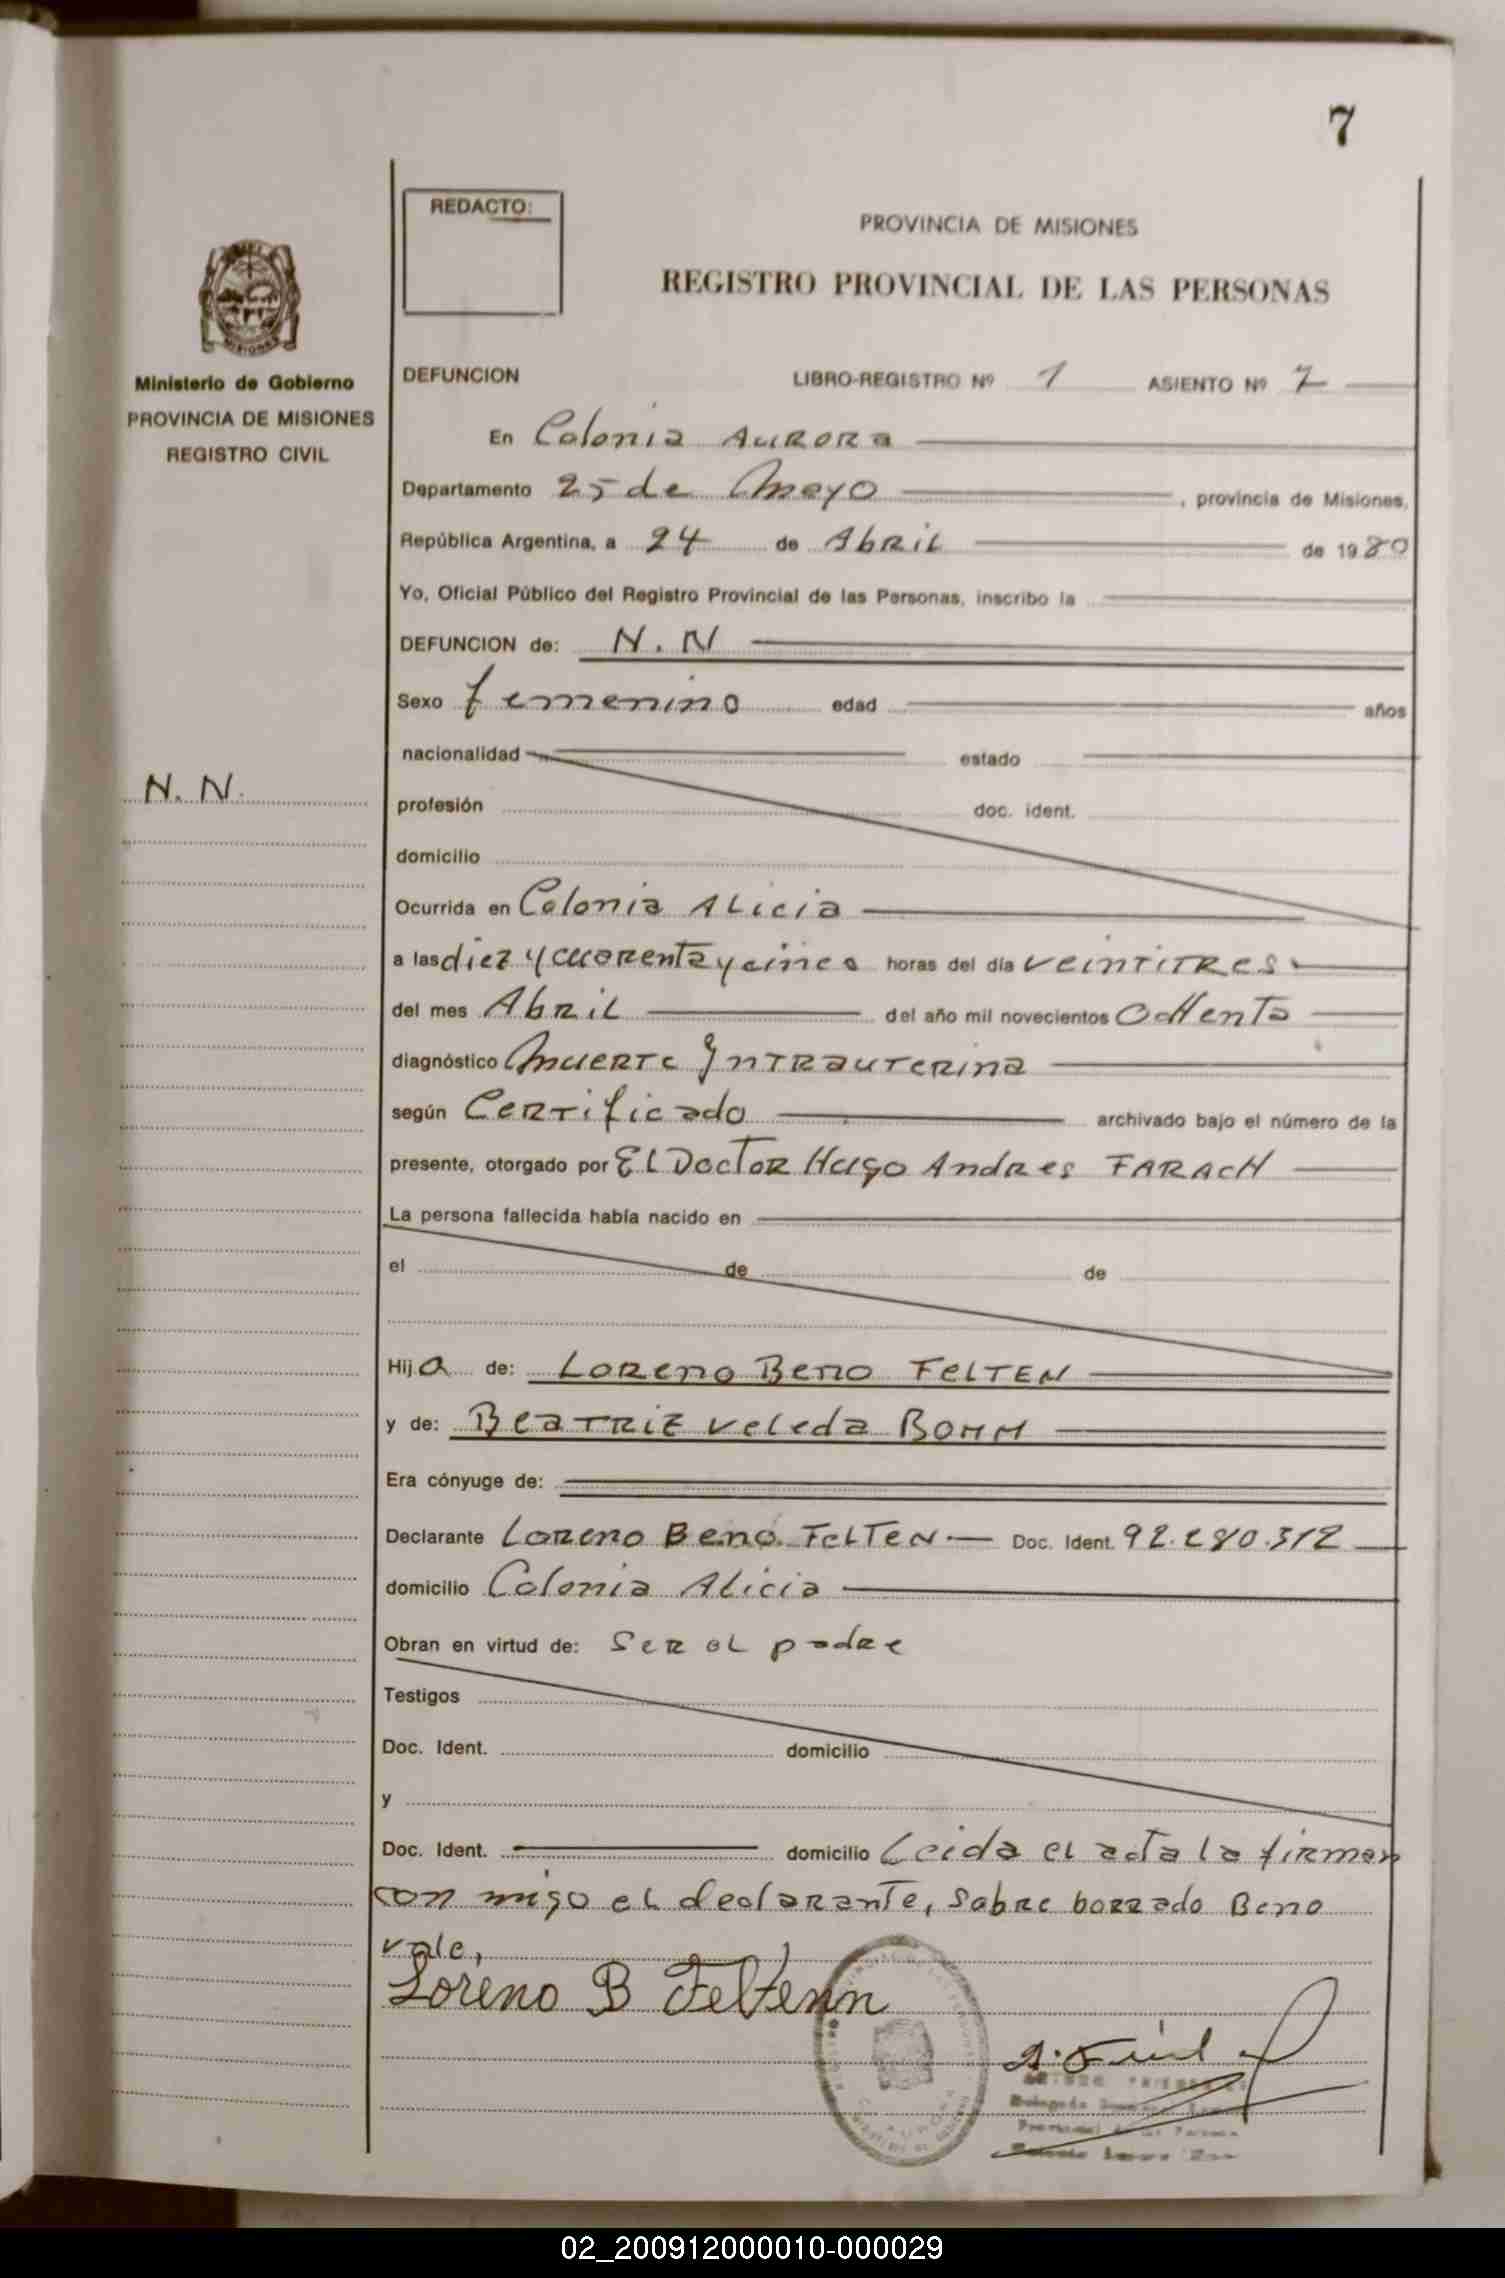 7
REDACTO:
PROVINCIA DE MISIONES
REGISTRO PROVINCIAL DE LAS PERSONAS
MISIONES
Ministerio de Gobierno
PROVINCIA DE MISIONES
REGISTRO CIVIL
N. N.
DEFUNCION LIBRO-REGISTRO Nº 1 ASIENTO Nº 7
En Colonia Aurora
Departamento 25 de Mayo, provincia de Misiones,
República Argentina, a 24 de Abril de 1980
Yo, Oficial Público del Registro Provincial de las Personas, inscribo la
DEFUNCION de: N. N
Sexo femenino edad años
nacionalidad estado
profesión doc. ident.
domicilio
Ocurrida en Colonia Alicia
a las diez y cuarenta y cinco horas del día veintitres
del mes Abril del año mil novecientos Ochenta
diagnóstico Muerte Intrauterina
según Certificado archivado bajo el número de la
presente, otorgado por El Doctor Hugo Andres FARACH
La persona fallecida había nacido en
el de de
Hija de: Loreno Beno FELTEN
y de: Beatriz Veleda BOHM
Era cónyuge de:
Declarante Loreno Beno FELTEN Doc. Ident. 92.280.312
domicilio Colonia Alicia
Obran en virtud de: Ser el padre
Testigos
Doc. Ident. domicilio
y
Doc. Ident. domicilio Leida el acta la firman
con migo el declarante, sobre borrado Beno
vale,
Loreno B Feltenn
02_200912000010-000029